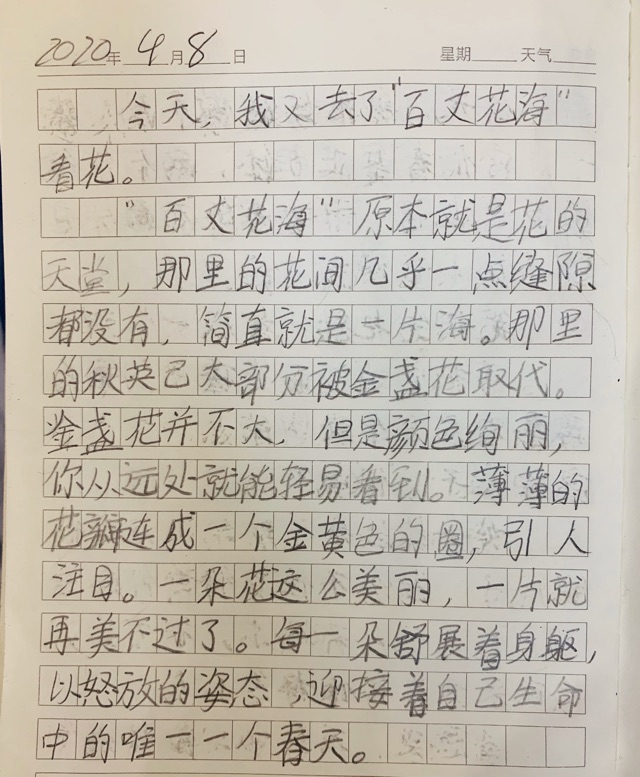 2020年4月8日 星期 天气
今天，我又去了“百丈花海”
看花。
“百丈花海”原本就是花的
天堂，那里的花间几乎一点缝隙
都没有，简直就是一片海。那里
的秋英已大部分被金盏花取代。
金盏花并不大，但是颜色绚丽，
你从远处就能轻易看到。薄薄的
花瓣连成一个金黄色的圈，引人
注目。一朵花这么美丽，一片就
再美不过了。每一朵舒展着身躯，
以怒放的姿态，迎接着自己生命
中的唯一一个春天。